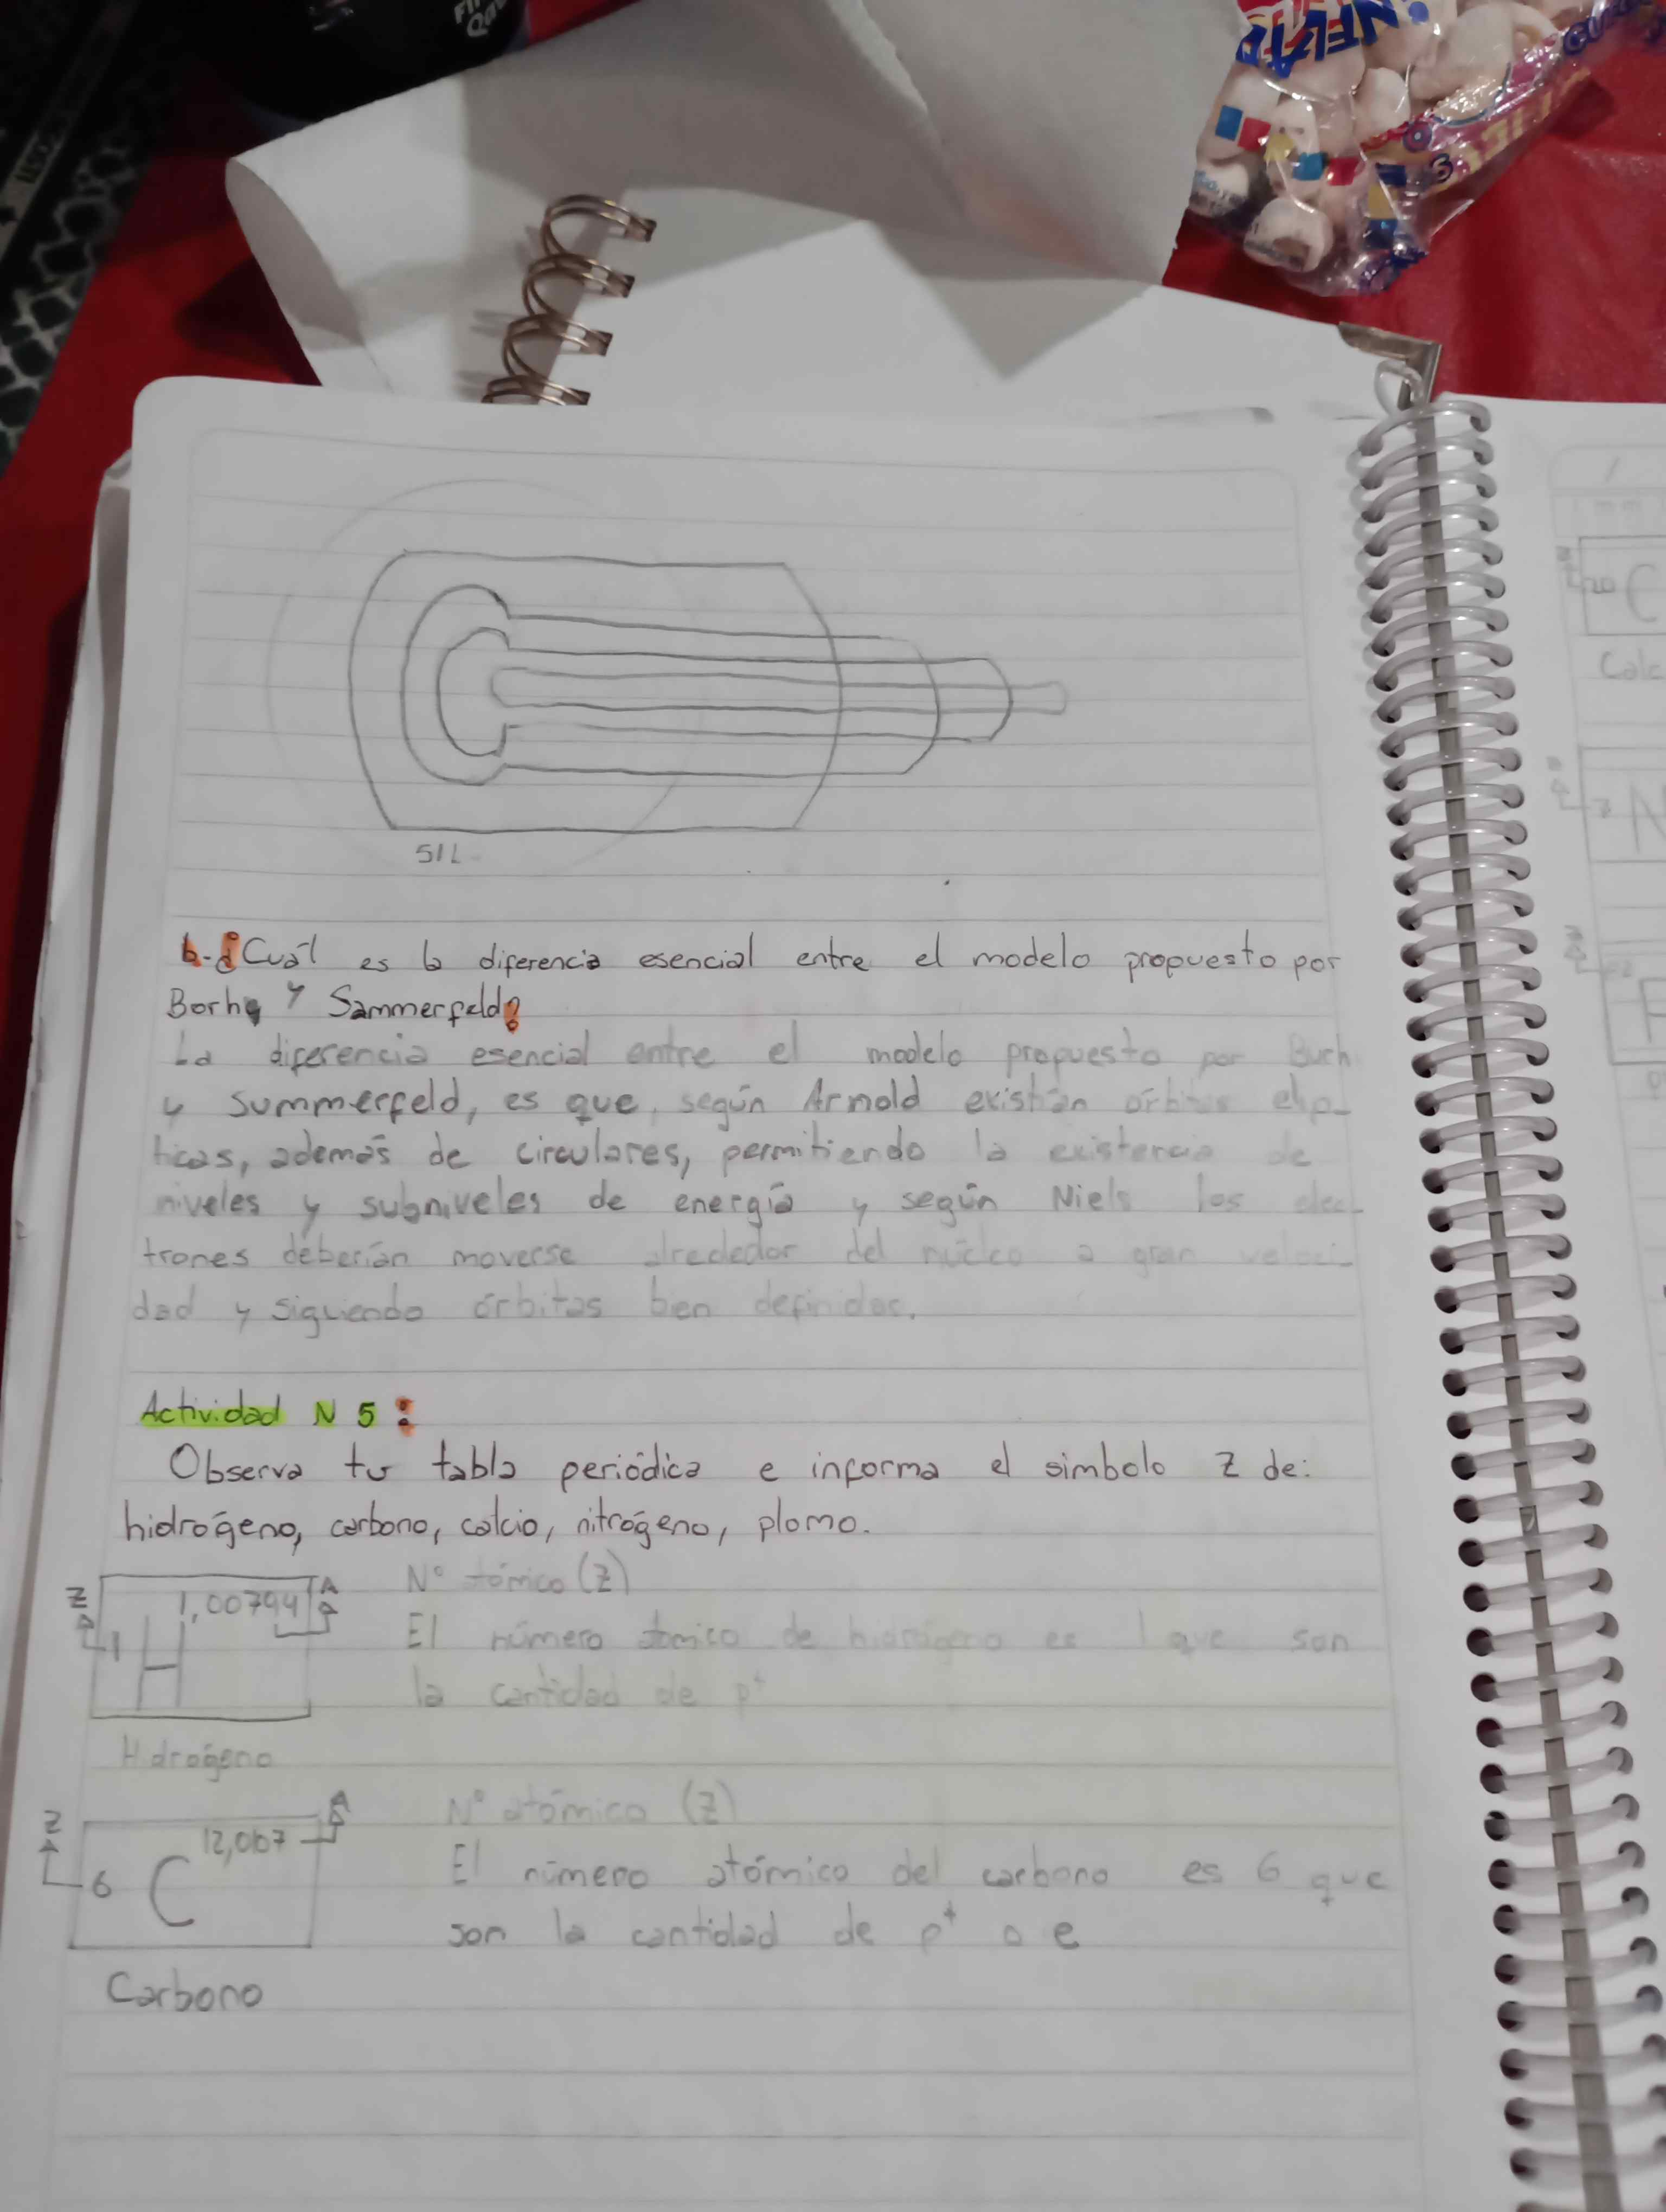 51L
b-¿Cuál es la diferencia esencial entre el modelo propuesto por
Borhg y Sammerfeld?
La diferencia esencial entre el modelo propuesto por Buch
y Summerfeld, es que, según Arnold existían órbitas elíp-
ticas, además de circulares, permitiendo la existencia de
niveles y subniveles de energía y según Niels los elec-
trones deberían moverse alrededor del núcleo a gran veloci-
dad y siguiendo órbitas bien definidas.
Actividad N 5:
Observa tu tabla periódica e informa el simbolo Z de:
hidrógeno, carbono, calcio, nitrógeno, plomo.
Z 1 H 1,00794 A
N° atómico (Z)
El número atomico de hidrógeno es 1 que son
la cantidad de p+
Hidrógeno
Z 6 C 12,0107 A
N° atómico (Z)
El número atómico del carbono es 6 que
son la cantidad de p+ o e
Carbono
Calc